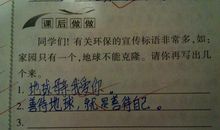 课后做做
同学们！有关环保的宣传标语非常多，如：
家园只有一个，地球不能克隆。请你再写出几
个来。
1. 地球 我爱你。
2. 善待地球 就是善待自己。
3.